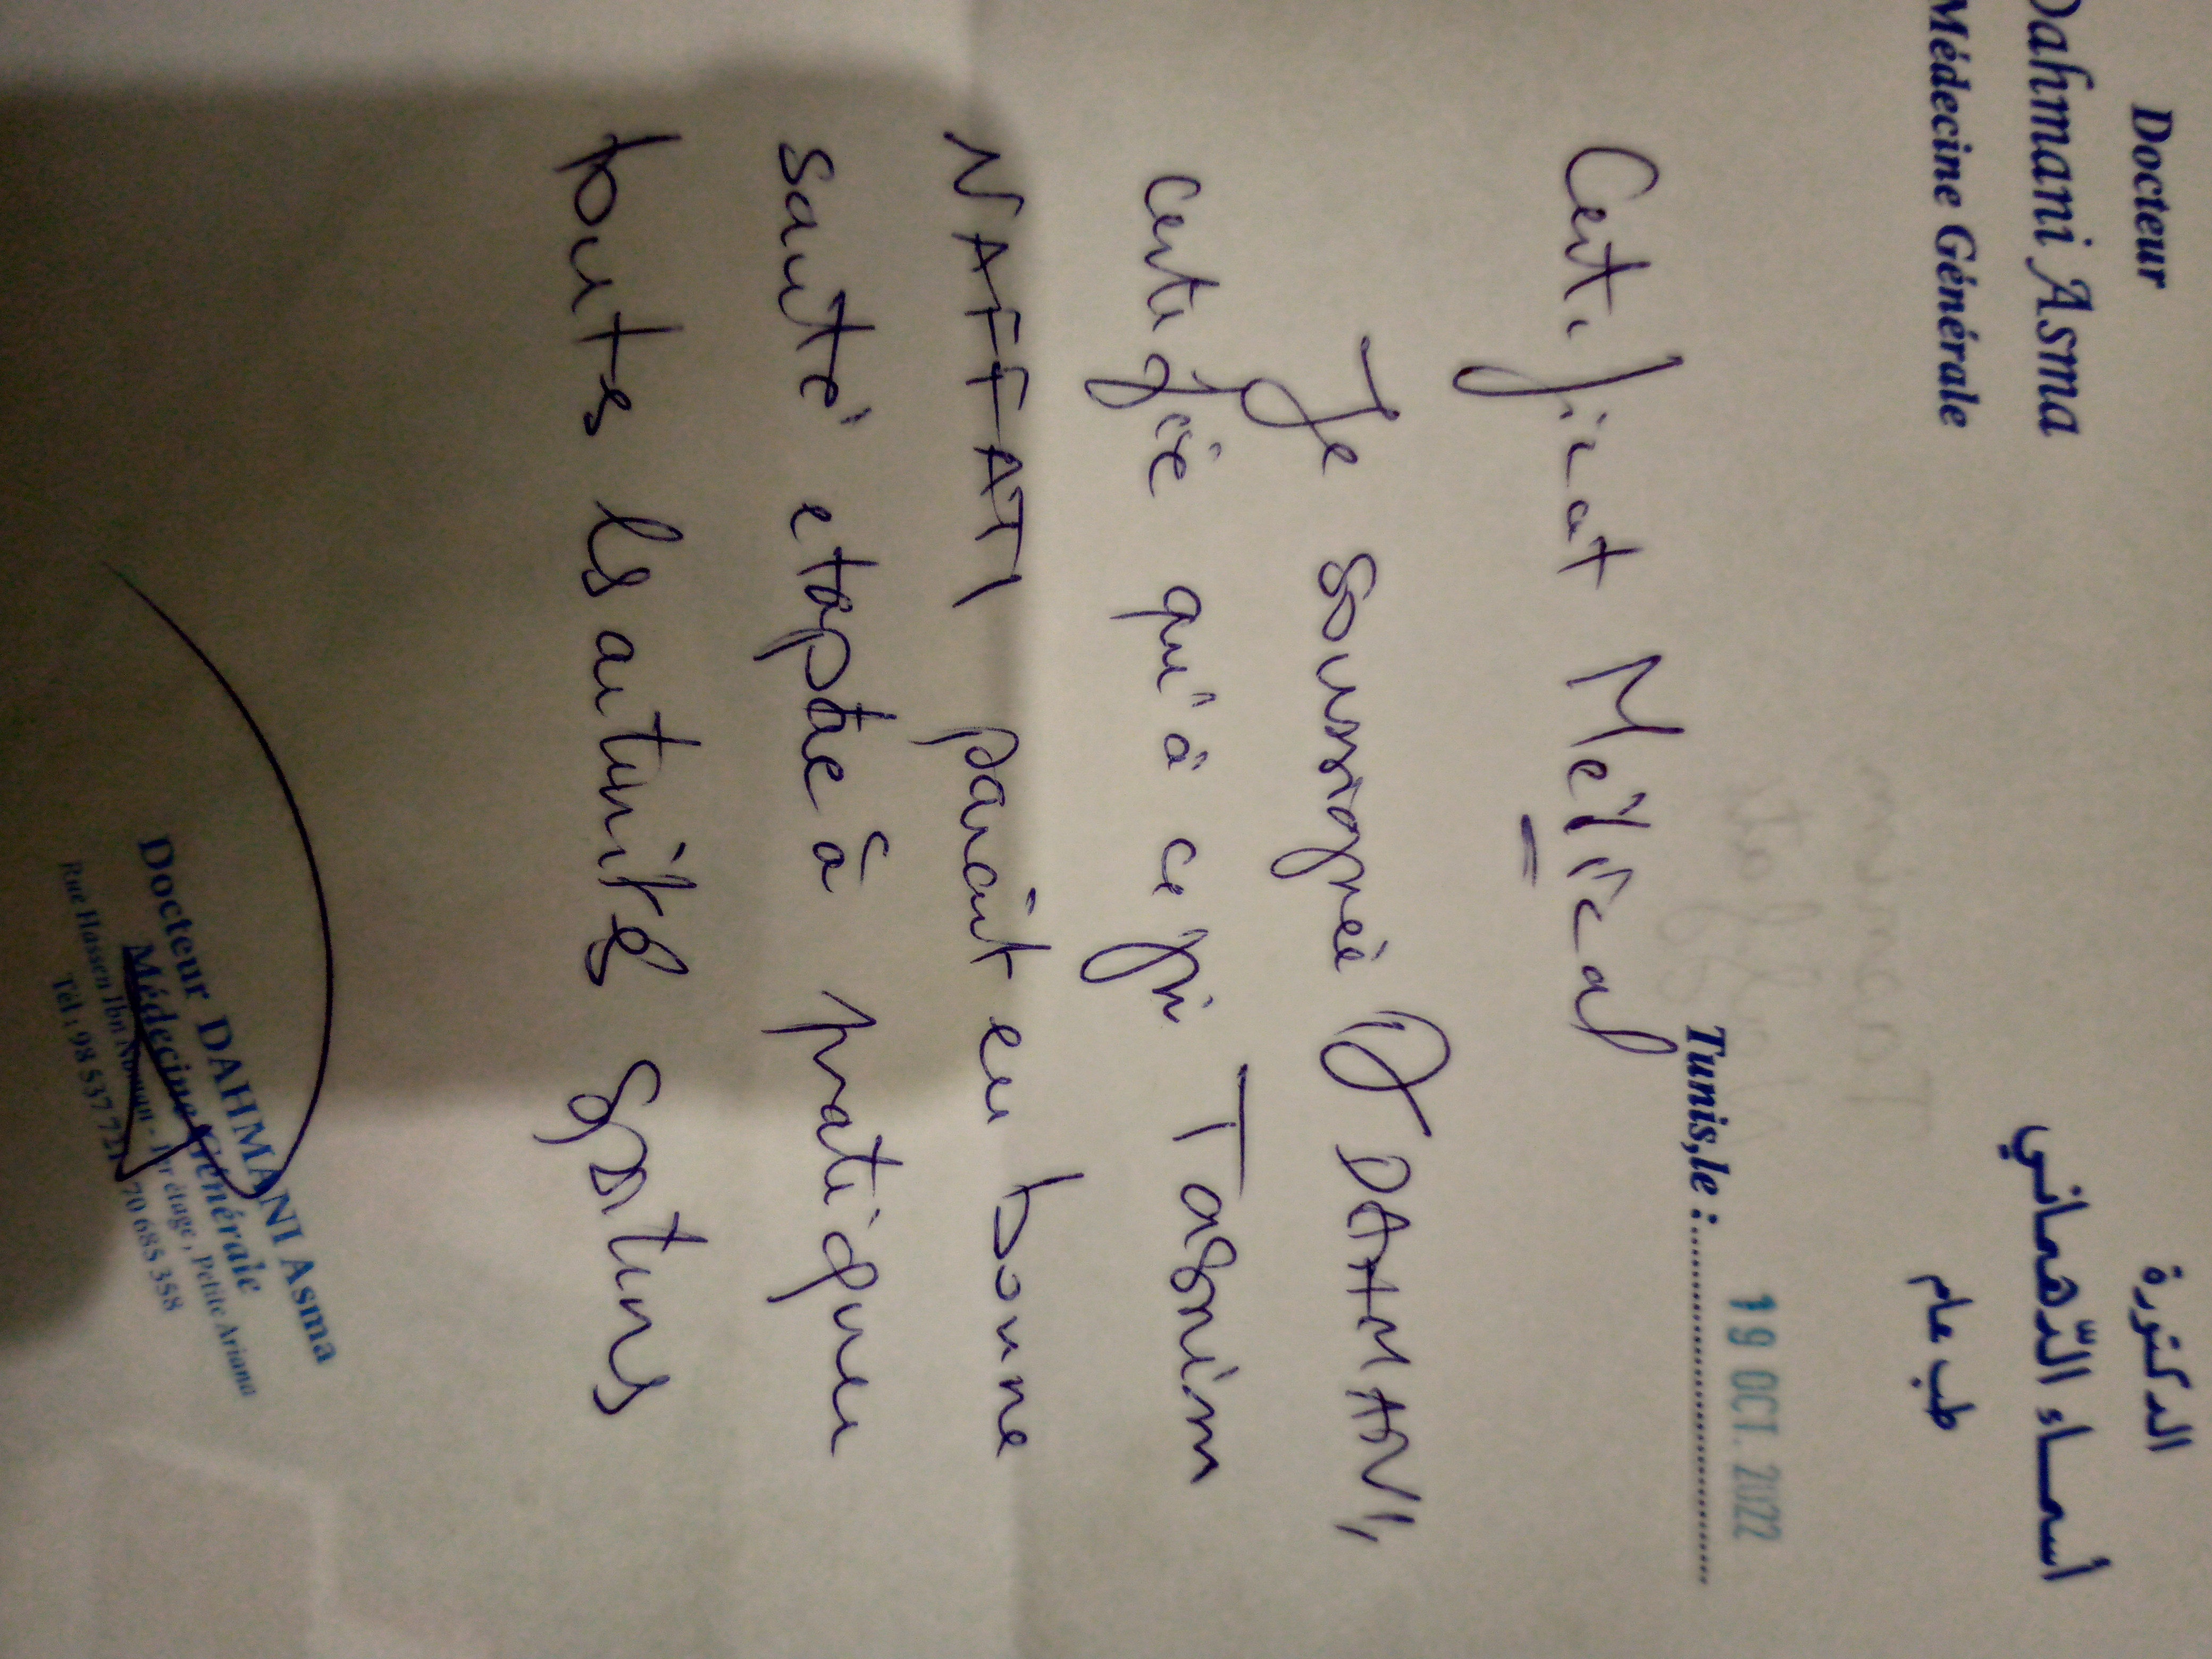 Docteur
Dahmani Asma
Médecine Générale
الدكتورة
أسمـــاء الدّهماني
طب عام
19 OCT. 2022
Tunis,le :
Certificat Médical
Je soussignée Dr DAHMANI,
certifie qu'à ce jr Tasnim
NAFFATI parait en bonne
santé et apte à pratiquer
toutes les activités sportives
Docteur DAHMANI Asma
Médecine Générale
Rue Hassen Ibn Nooman - 1er étage, Petite Ariana
Tél : 98 537 721 70 685 358